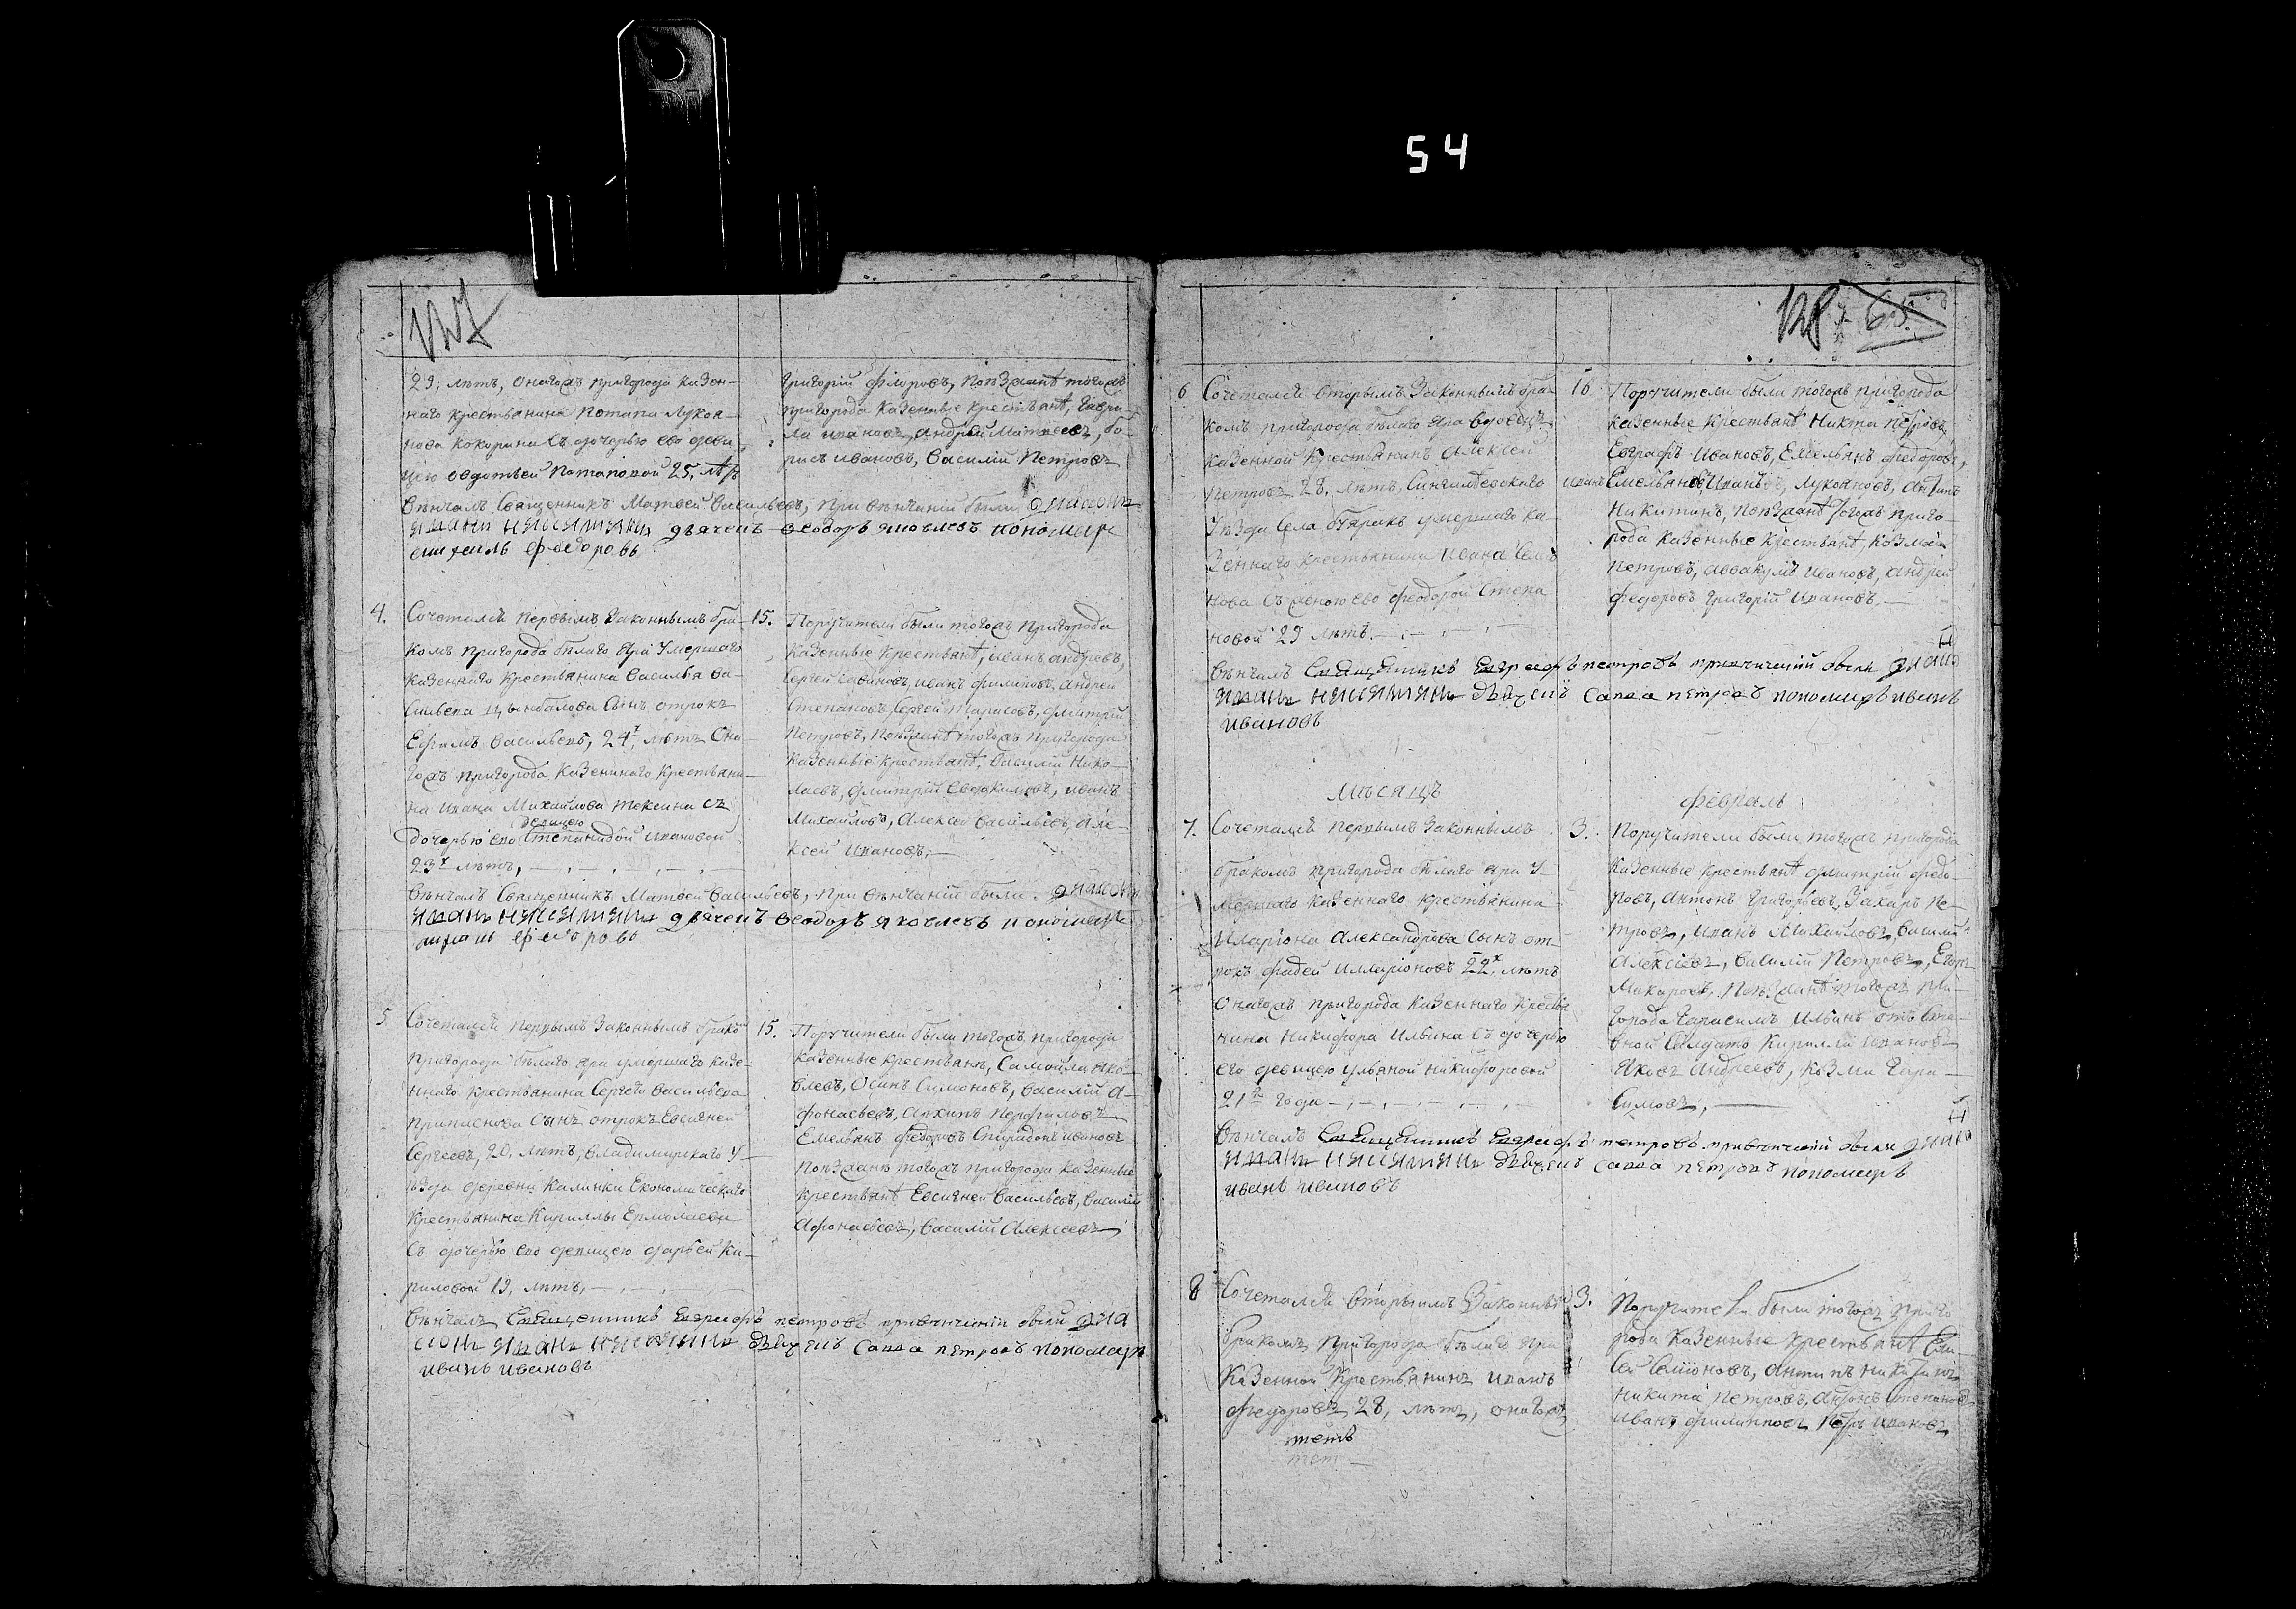 54
127
29, летъ, Оногожъ пригорода казен-
наго крестьянина Потапа Лукоя-
нова Кокорина съ дочерью ево деви-
цею Овдотьей Потаповой 25, летъ
Григорій Фёдоровъ, Поезжанѣ тогожъ
пригорода казенные крестьянѣ, Гаври-
ла Ивановъ, Андрей Матвеевъ, Бо-
рисъ Ивановъ, Василій Петровъ
Венчалъ Священникъ Матвей Васильевъ, при венчаніи были діаконъ
Иванъ дьячекъ Феодоръ Яковлевъ пономарь
Федоровъ
4. Сочетался первымъ законнымъ бра-
комъ пригорода Белаго Яра умершаго
казеннаго крестьянина Василья Ва-
сильева Цынбалова Сынъ отрокъ
Ефимъ Васильевъ, 24х летъ Оно-
гожъ пригорода казеннаго крестьяни-
на Ивана Михайлова Тексина съ
девицею
дочерью ево Степанидой Ивановой
23х летъ,
15. Поручители были тогожъ пригорода
казенные крестьянѣ, Иванъ Андреевъ,
Сергей Савиновъ, Иванъ Филиповъ, Андрей
Степановъ, Сергей Тарасовъ, Дмитрій
Петровъ, Поезжанѣ тогожъ пригорода
казенные крестьянѣ, Василій Нико-
лаевъ, Дмитрій Евдокимовъ, Иванъ
Михайловъ, Алексей Васильевъ, Але-
ксей Ивановъ,
Венчалъ Священникъ Матвей Васильевъ, при венчаніи были діаконъ
Иванъ дьячекъ Феодоръ Яковлевъ пономарь
Федоровъ
5 Сочетался первымъ законнымъ бракомъ
пригорода Белаго Яра умершаго казе-
ннаго крестьянина Сергея Васильева
Сынъ отрокъ Евсигней
Сергеевъ, 20, летъ, Владимирскаго У-
езда деревни Калинки Економическаго
Крестьянина Кирилы Ермолаева
съ дочерью ево девицею Дарьей Ки-
риловой 19, летъ,
15. Поручители были тогожъ пригорода
казенные крестьянѣ, Самойла Яко-
влевъ, Осипъ Симоновъ, Василій А-
фонасьевъ, Архипъ Перфильевъ
Емельянъ Федоровъ Спиридонъ Ивановъ
Поезжанѣ тогожъ пригорода казенные
крестьянѣ Евсигней Васильевъ, Василій
Афонасьевъ, Василій Алексеевъ
Венчалъ Священникъ Петровъ при венчаніи были діа
конъ Иванъ дьячекъ Савва Петровъ пономарь
Иванъ Ивановъ
128 65
6 Сочетался вторымъ законнымъ бра-
комъ пригорода Белаго Яра вдовецъ
казенной крестьянинъ Алексей
Петровъ 28, летъ, Сингилеевскаго
Уезда Села умершаго ка-
зеннаго крестьянина Ивана Семе
нова съ женою ево Феодорой Степа
новой 29 летъ.
16 Поручители были тогожъ пригорода
казенные крестьянѣ Никита Петровъ,
Евграфъ Ивановъ, Емельянъ Федоровъ,
Лукояновъ, Антипъ
Никитинъ, Поезжанѣ тогожъ приго-
рода казенные крестьянѣ, Козма
Петровъ, Аввакумъ Ивановъ, Андрей
Федоровъ Григорій Ивановъ.
Венчалъ Священникъ Петровъ при венчаніи были діако
Иванъ дьячекъ Савва Петровъ пономарь Иванъ
Ивановъ
Месяцъ Февраль
7. Сочетался первымъ законнымъ
бракомъ пригорода Белаго Яра У-
мершаго казеннаго крестьянина
Иларіона Александрова сынъ от-
рокъ Фадей Илларіоновъ 22х, летъ
Оногожъ пригорода казеннаго крестья
нина Никифора Ильина съ дочерью
его девицею Ульяной Никифоровой
21го года
3. Поручители были тогожъ пригорода
казенные крестьянѣ Дмитрій Федо-
ровъ, Антонъ Григорьевъ, Захаръ Пе-
тровъ, Иванъ Михайловъ, Василій
Алексіевъ, Василій Петровъ, Егоръ
Макаровъ, Поезжанѣ тогожъ при-
города Герасимъ Ильинъ отста-
вной Салдатъ Кирилла Ивановъ
Яковъ Андреевъ, Козма Гера-
симовъ,
Венчалъ Священникъ Петровъ при венчаніи были діако
Иванъ дьячекъ Савва Петровъ пономарь
Иванъ Ивановъ
8 Сочетался вторымъ законны
бракомъ пригорода Белаго Яра
казенной крестьянинъ Иванъ
Федоровъ 28, летъ, оногожъ
3. Поручители были тогожъ приго
рода казенные крестьянѣ Ели
сей Семіоновъ, Антипъ Никитинъ
Никита Петровъ, Антонъ Степановъ
Иванъ Филипповъ Петръ Ивановъ